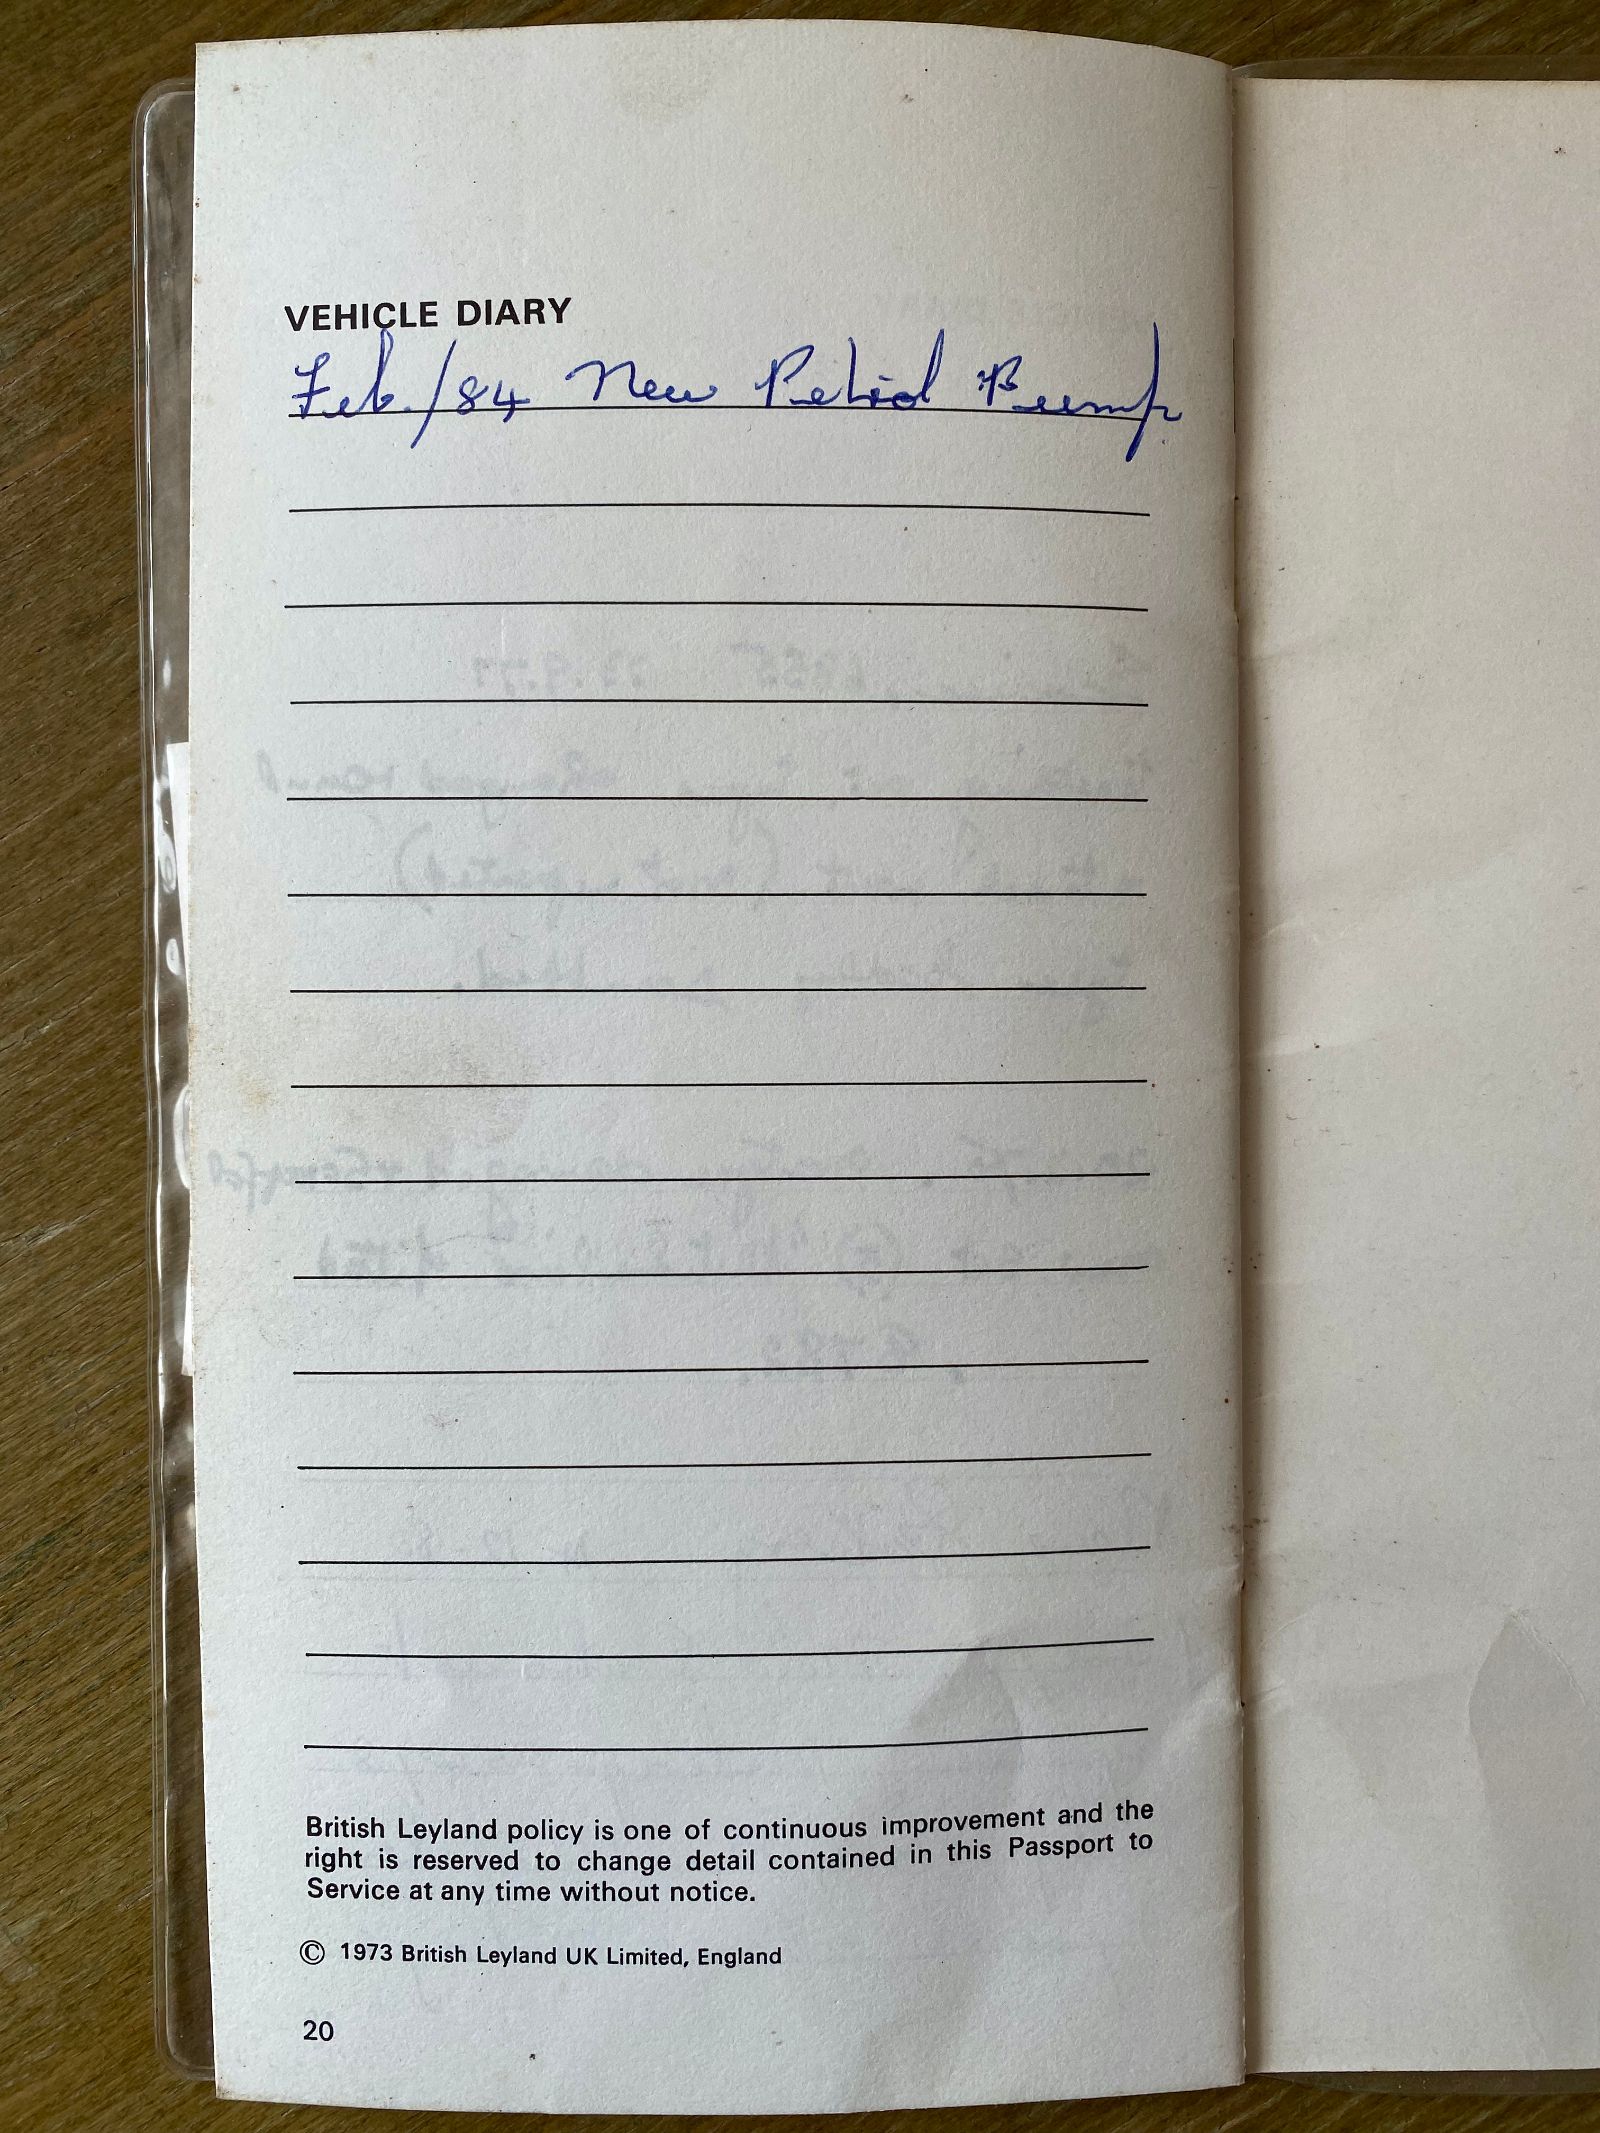 VEHICLE DIARY
Feb./84 New Petrol Pump
British Leyland policy is one of continuous improvement and the
right is reserved to change detail contained in this Passport to
Service at any time without notice.
© 1973 British Leyland UK Limited, England
20